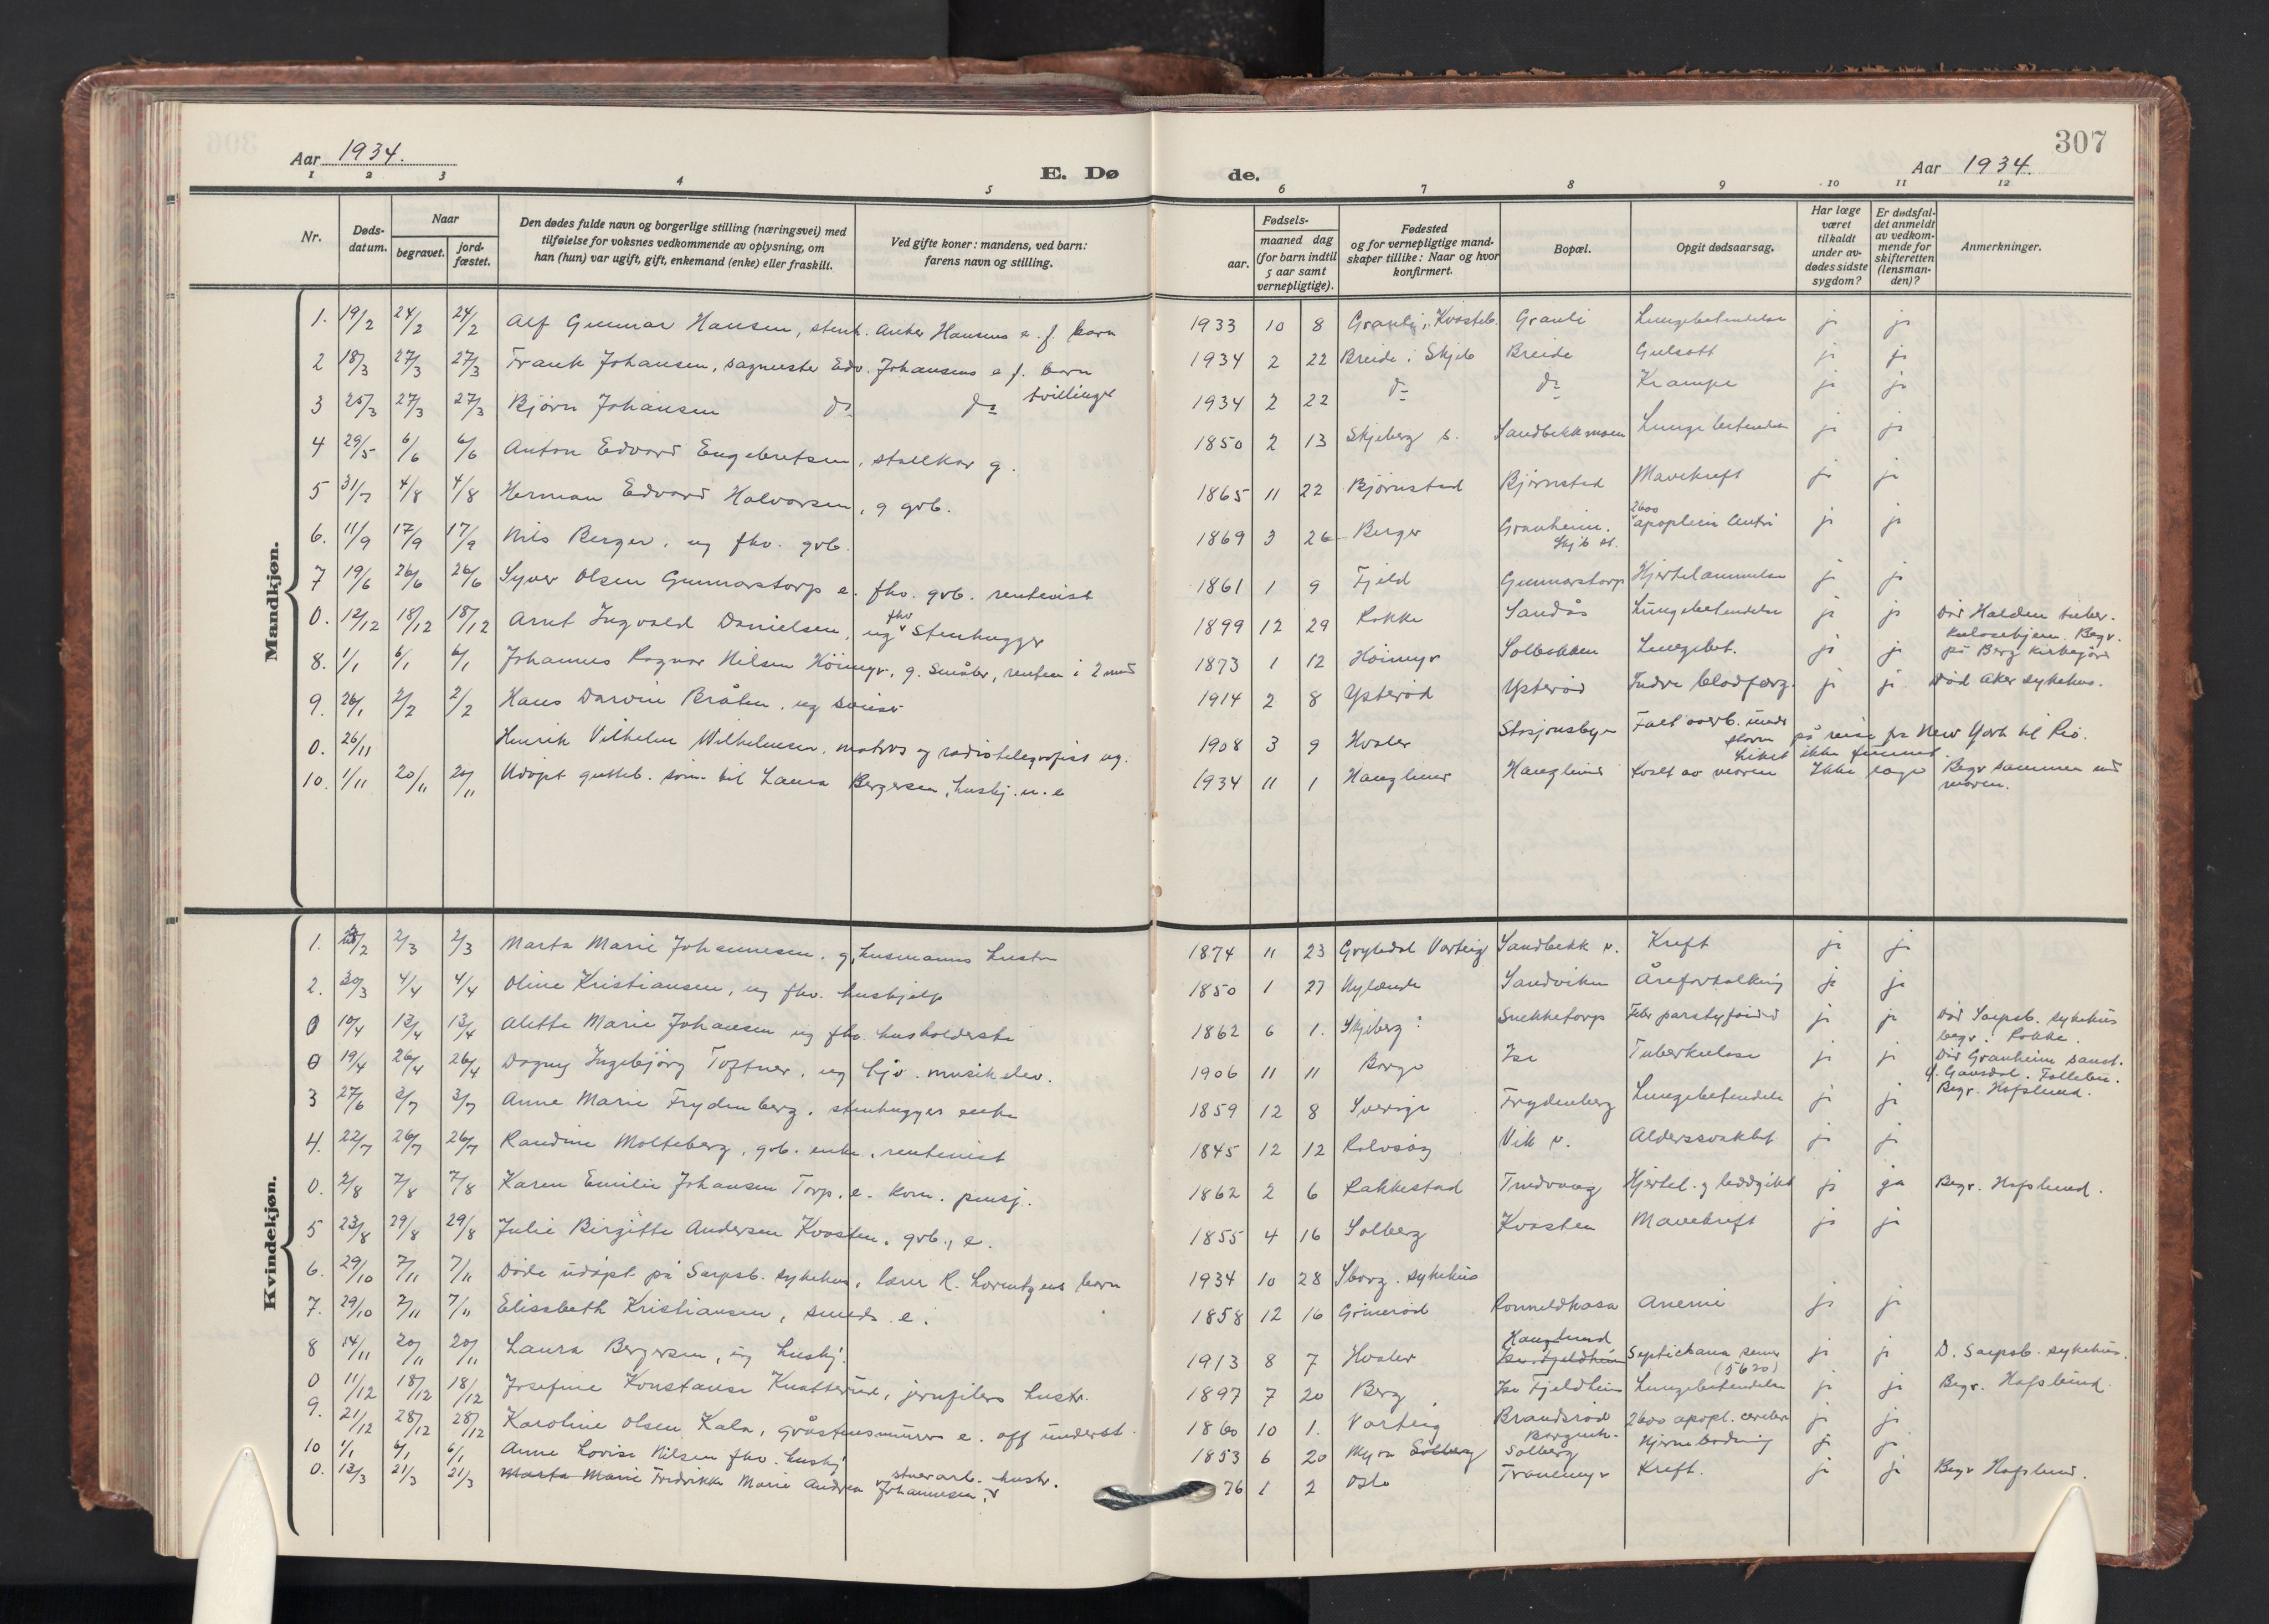 307
Aar 1934.
E. Døde.
Aar 1934.
1 2 3 4 5 6 7 8 9 10 11 12
Nr.
Døds-datum.
Naar
begravet.
jord-fæstet.
Den dødes fulde navn og borgerlige stilling (næringsvei) med
tilføielse for voksnes vedkommende av oplysning, om
han (hun) var ugift, gift, enkemand (enke) eller fraskilt.
Ved gifte koner: mandens, ved barn:
farens navn og stilling.
Fødsels-
aar.
maaned dag
(for barn indtil
5 aar samt
vernepligtige).
Fødested
og for vernepligtige mand-
skaper tillike: Naar og hvor
konfirmert.
Bopæl.
Opgit dødsaarsag.
Har læge
været
tilkaldt
under av-
dødes sidste
sygdom?
Er dødsfal-
det anmeldt
av vedkom-
mende for
skifteretten
(lensman-
den)?
Anmerkninger.
Mandkjøn.
1. 19/2 24/2 24/2 Alf Gunnar Hansen, stenh. Anker Hansens e. f. barn 1933 10 8 Granli, Kvasteb. Granli Lungebetendelse ja ja
2 18/3 27/3 27/3 Frank Johansen, sagmester Edv. Johansens e f. barn 1934 2 22 Breide i Skjeb Breide Gulsott ja ja
tvillinger
3 25/3 27/3 27/3 Bjørn Johansen do do 1934 2 22 do do Krampe ja ja
4 29/5 6/6 6/6 Anton Edvard Engebretsen, stallkar g. 1850 2 13 Skjeberg s. Sandbekkmoen Lungebetendelse ja ja
5 31/7 4/8 4/8 Herman Edvard Halvorsen, g grb. 1865 11 22 Bjørnstad Bjørnstad Mavekreft ja ja
6. 11/9 17/9 17/9 Nils Berger, ug fhv. grb. 1869 3 26 Berger Granheim. 2600 apoplexia ja ja
7 19/6 26/6 26/6 Syver Olsen Gunnarstorp e. fhv. grb. rentenist 1861 1 9 Fjeld Gunnarstorp Hjertelammelse ja ja
0. 12/12 18/12 18/12 Arnt Ingvald Danielsen, ug fhv Stenhugger 1899 12 29 Rokke Sandås Lungebetendelse ja ja Død Halden tuber-
kulosehjem. Begr.
på Berg kirkegård
8. 1/1 6/1 6/1 Johannes Ragnar Nilsen Höimyr, g. småbr, 1873 1 12 Höimyr Solbakken Lungebet. ja ja
9. 26/1 2/2 2/2 Hans Darvin Bråten, ug 1914 2 8 Ysterød Ysterød Indre blodforg. ja ja Død Aker sykehus.
0. 26/11 Henrik Vilhelm Wilhelmsen, matros og radiotelegrafist ug. 1908 3 9 Hvaler Stasjonsbyen Falt overb. under
storm på reise fra New York til Rio.
Liket ikke funnet.
10. 1/11 20/11 20/11 Udøpt gutteb. sönn til Laura Bergersen, hushj. u. e 1934 11 1 Hauglund Hauglund kvalt av moren Ikke læge Begr sammen med
moren.
Kvindekjøn.
1. 2/3 2/3 Marta Marie Johannesen, g, husmanns hustru 1874 11 23 Grytedal Varteig Sandbekk v. Kreft ja ja
2. 30/3 4/4 4/4 Oline Kristiansen, ug fhv. hushjelp 1850 1 27 Nylende Sandviken Åreforkalkning ja ja
0 10/4 13/4 13/4 Alette Marie Johansen ug fhv. husholderske 1862 6 1. Skjeberg Snekketorp Febr paratyfoid ja ja Død Sarpsb. sykehus
begr. Rokke.
0 19/4 26/4 26/4 Dagny Ingebjörg Toftner, ug hjv. musikelev. 1906 11 11 Borge Ise Tuberkulose ja ja Død Granheim sanat.
Gausdal. Follebu.
Begr. Hafslund.
3 27/6 3/7 3/7 Anne Marie Frydenberg, stenhugger enke 1859 12 8 Sverige Frydenberg Lungebetendelse ja ja
4. 22/7 26/7 26/7 Randine Molteberg, grb. enke, rentenist 1845 12 12 Rolvsøy Vik v. Alderssvakhet ja ja
0. 2/8 7/8 7/8 Karen Emilie Johansen Torp, e. kom. pensj. 1862 2 6 Rakkestad Tindvang Hjertel. og leddgikt ja ja Begr. Hafslund.
5 23/8 29/8 29/8 Julie Birgitte Andersen Kvasten, grb., e. 1855 4 16 Solberg Kvasten Mavekreft ja ja
6. 29/10 7/11 7/11 Døde udøpt på Sarpsb. sykehus, lærer R. Lorentzens barn 1934 10 28 Sborg. sykehus
7. 29/10 7/11 7/11 Elisabeth Kristiansen, smeds e. 1858 12 16 Grimerød Anemi ja ja
8 14/11 20/11 20/11 Laura Bergersen, ug hushj. 1913 8 7 Hvaler Hauglund Ise Fjeldheim (5620) ja ja D. Sarpsb. sykehus.
0 11/12 18/12 18/12 Josefine Konstanse Knatterud, jernfilers hustr. 1897 7 20 Berg Ise Fjeldheim Lungebetendelse ja ja Begr. Hafslund.
9. 21/12 28/12 28/12 Karoline Olsen Kala, gråstensmurers e. off underst. 1860 10 1. Varteig Brandsrød 2600 apopl. cerebri ja ja
10 1/1 6/1 6/1 Anne Lovise Nilsen fhv. hushj 1853 6 20 Myra Solberg Solberg Hjerneblødning ja ja
0. 13/3 21/3 21/3 Marta Marie Fredrikke Marie Andrea Johannesen, stuerarb. hustr. 76 1 2 Oslo Tranemyr Kreft. ja ja Begr Hafslund.